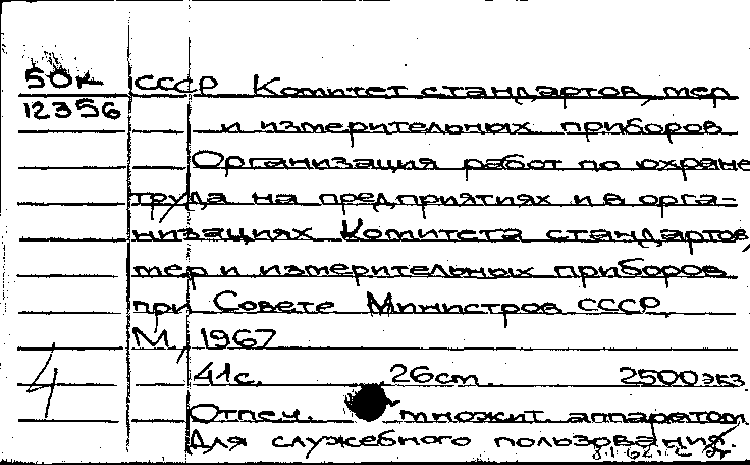 50к СССР Комитет стандартов, мер
12356 и измерительных приборов
Организация работ по охране
труда на предприятиях и в орга-
низациях Комитета стандартов,
мер и измерительных приборов
при Совете Министров СССР.
М., 1967
4 41с. 26см. 2500экз.
Отпеч. множит аппаратом
Для служебного пользования.